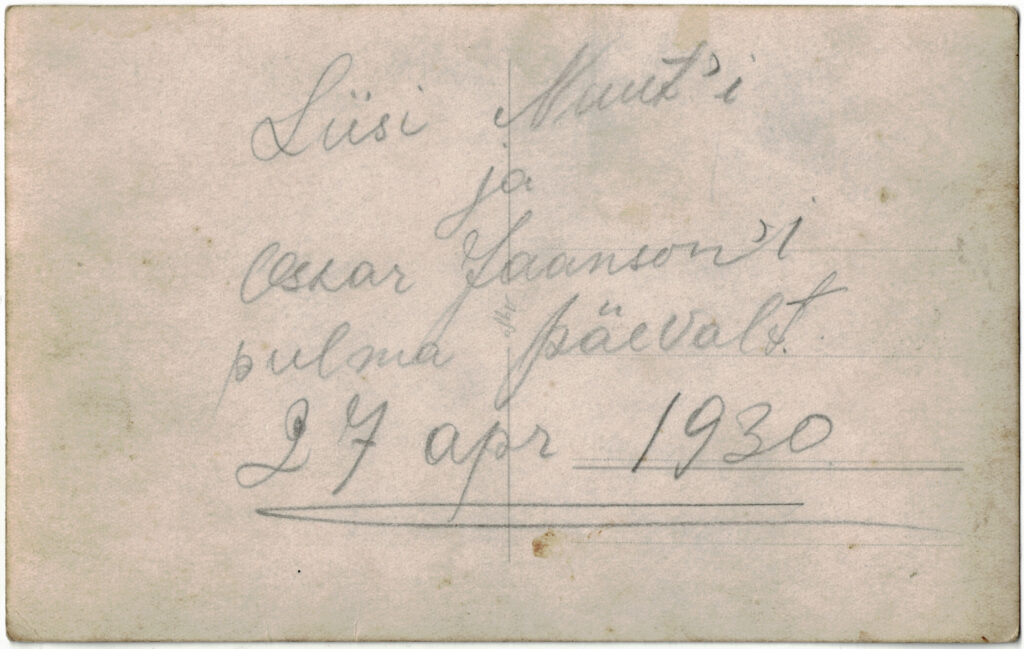 Liisi Muut'i
ja
Oskar Jaanson'i
pulma päevalt.
27 apr 1930